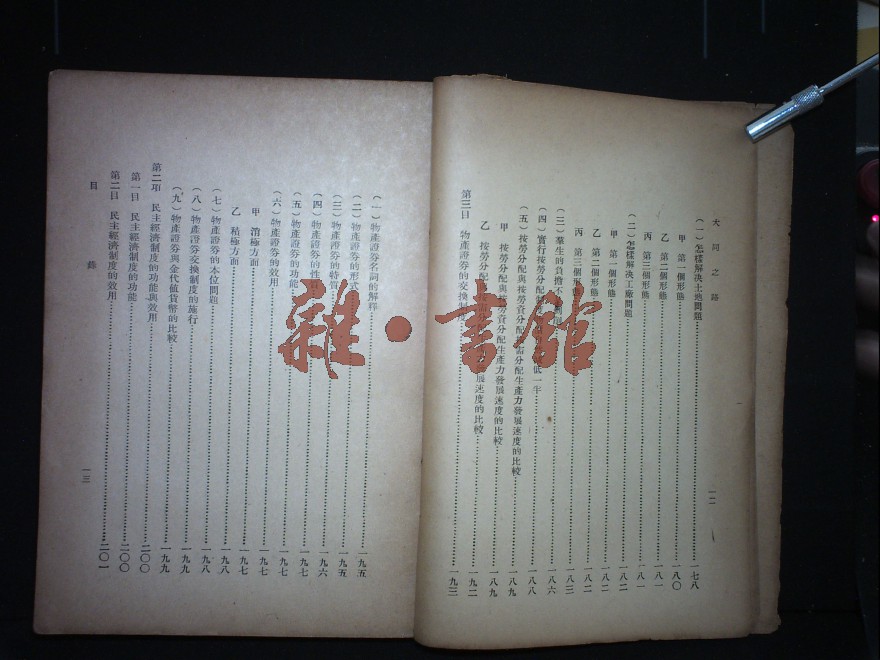 大同之路
(一)怎樣解决土地問題 一七八
甲 第一個形態 一八〇
乙 第二個形態 一八一
丙 第三個形態 一八一
(二)怎樣解决工廠問題 一八二
甲 第一個形態 一八二
乙 第二個形態 一八二
丙 第三個形態 一八三
(三)羣生的負擔 一八六
(四)實行按勞分配 低一半 一八八
(五)按勞分配與按勞資分配 需分配生產力發展速度的比較 一八九
甲 按勞分配與按勞資分配生產力發展速度的比較 一八九
乙 按勞分配 展速度的比較 一九二
第三目 物產證券的交換 一九三
一二
(一)物產證券名詞的解釋 一九五
(二)物產證券的形式 一九五
(三)物產證券的特質 一九六
(四)物產證券的性 一九七
(五)物產證券的功能 一九七
(六)物產證券的效用 一九七
甲 消極方面 一九七
乙 積極方面 一九八
(七)物產證券的本位問題 一九八
(八)物產證券交換制度的施行 一九九
(九)物產證券與金代值貨幣的比較 一九九
第二項 民主經濟制度的功能與效用 二〇〇
第一目 民主經濟制度的功能 二〇〇
第二目 民主經濟制度的效用 二〇一
目 錄
一三
雜·書館